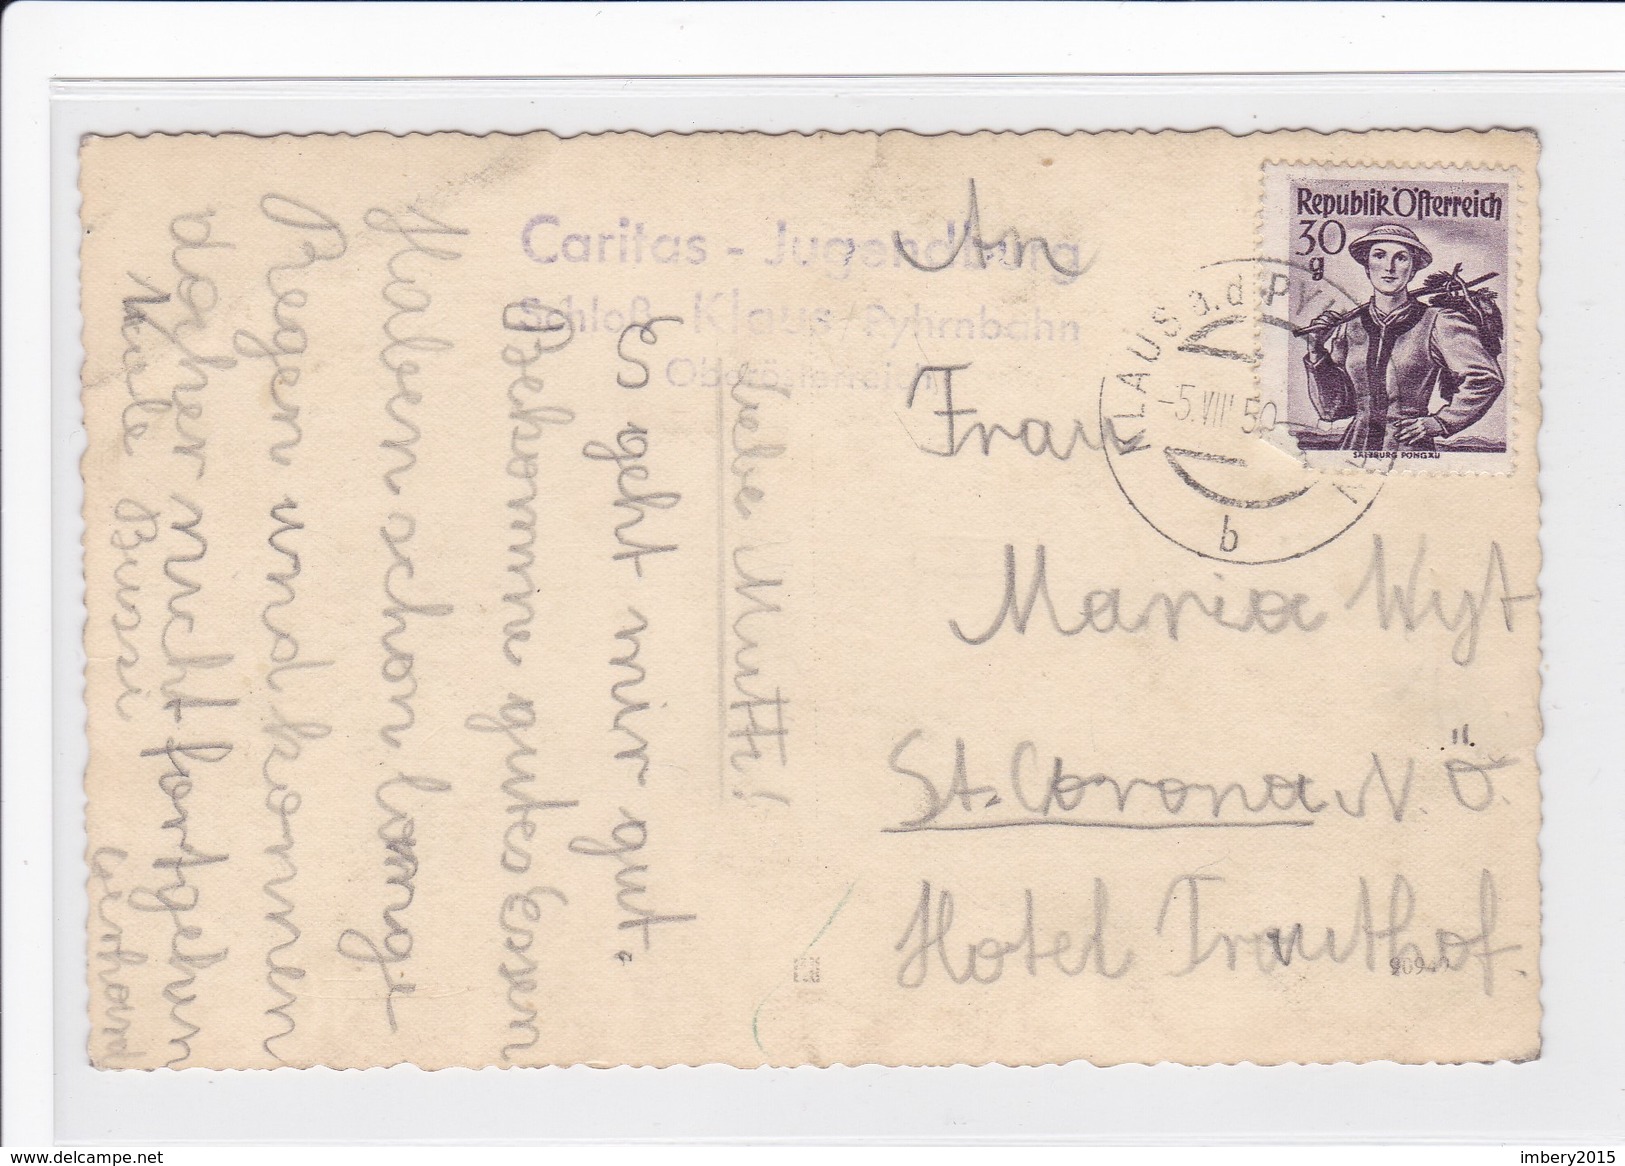 Caritas - Jugendburg
Schloß Klaus / Pyhrnbahn
Oberösterreich
Republik Österreich
30
g
SALZBURG PONGAU
KLAUS a.d. PYHRNBAHN
-5.VIII 50
b
An
Frau
Maria Wyt
St. Corona N.Ö.
II.
Hotel Trauthof.
Liebe Mutti!
Es geht mir gut.
Bekommen gutes Essen
Haben schon lange
Regen und können
daher nicht fortgehen
Viele Bussi
www.delcampe.net
imbery2015